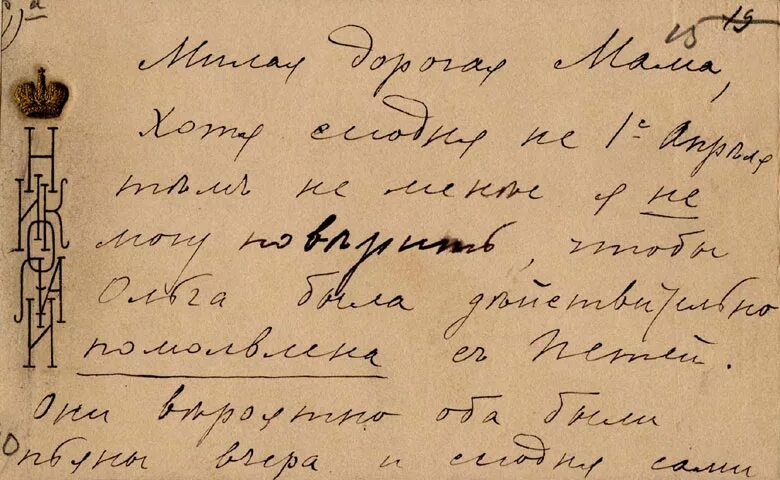 15 19
Милая дорогая Мама,
Хотя сегодня не 1е Апрѣля
тѣмъ не менѣе я не
могу повѣрить, чтобы
Ольга была дѣйствительно
помолвлена съ Петей.
Они вѣроятно оба были
пьяны вчера и сегодня сами
НИКОЛАЙ